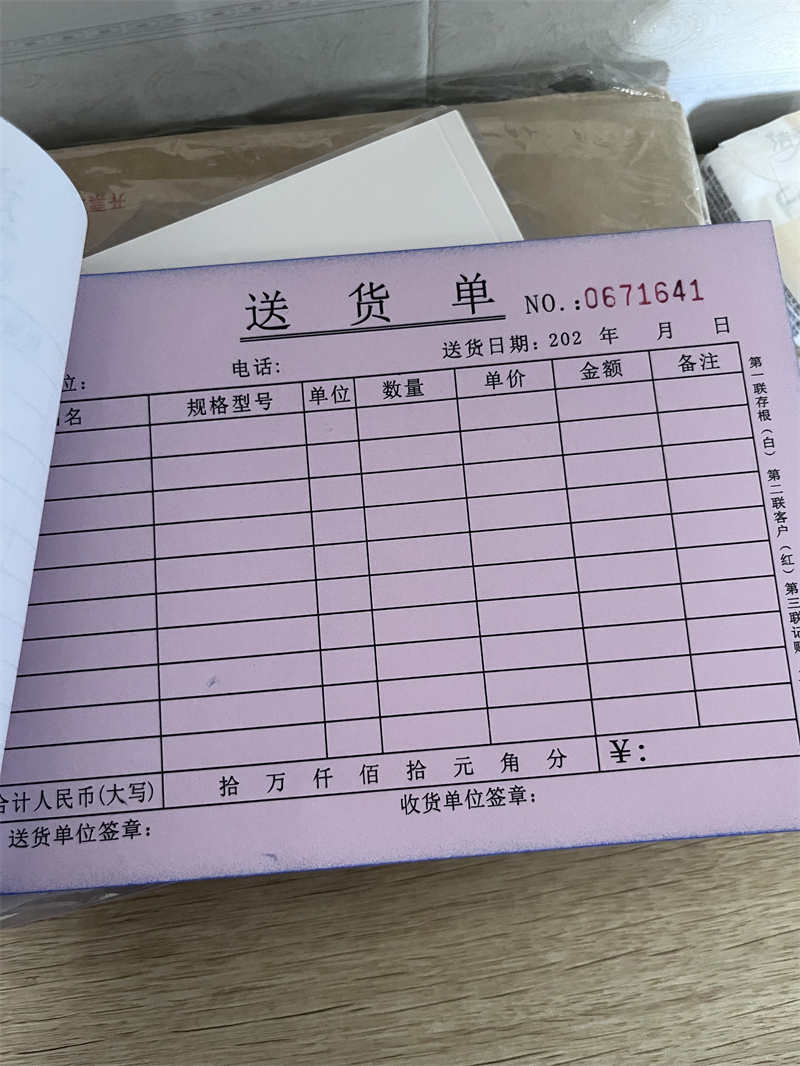 开票
送货单 NO.:0671641
送货日期: 202 年 月 日
位: 电话:
名 规格型号 单位 数量 单价 金额 备注
合计人民币(大写) 拾 万 仟 佰 拾 元 角 分 ¥:
送货单位签章: 收货单位签章:
第一联存根(白) 第二联客户(红) 第三联记账